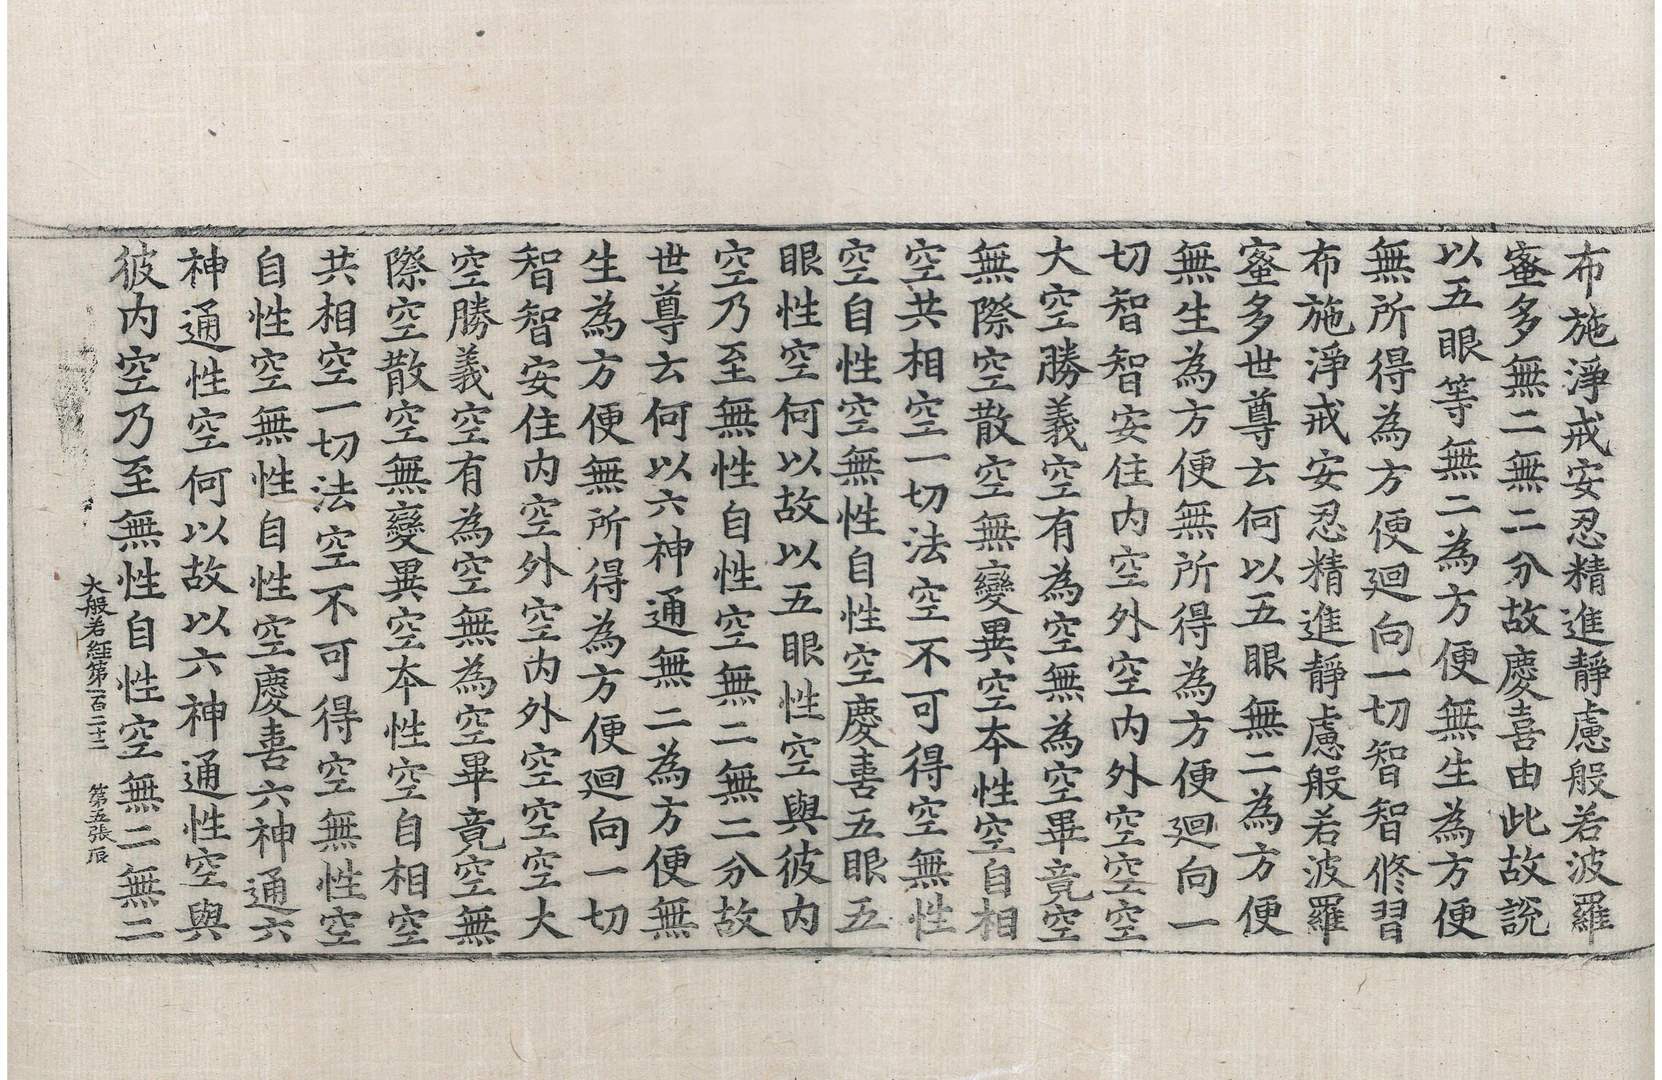 布施淨戒安忍精進靜慮般若波羅
蜜多無二無二分故慶喜由此故說
以五眼等無二為方便無生為方便
無所得為方便迴向一切智智修習
布施淨戒安忍精進靜慮般若波羅
蜜多世尊云何以五眼無二為方便
無生為方便無所得為方便迴向一
切智智安住內空外空內外空空空
大空勝義空有為空無為空畢竟空
無際空散空無變異空本性空自相
空共相空一切法空不可得空無性
空自性空無性自性空慶喜五眼五
眼性空何以故以五眼性空與彼內
空乃至無性自性空無二無二分故
世尊云何以六神通無二為方便無
生為方便無所得為方便迴向一切
智智安住內空外空內外空空空大
空勝義空有為空無為空畢竟空無
際空散空無變異空本性空自相空
共相空一切法空不可得空無性空
自性空無性自性空慶喜六神通六
神通性空何以故以六神通性空與
彼內空乃至無性自性空無二無二
大般若經第一百二十二 第五張 辰